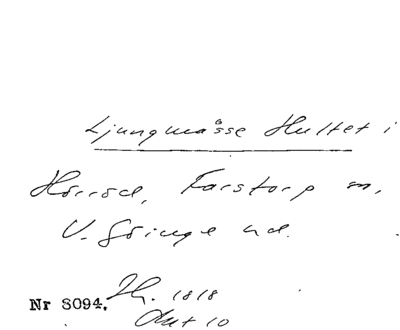 Ljungmåsse Hultet i
Hörröd, Farstorp m,
V. Göinge hd.
Nr 8094. Th. 1818
Akt 10